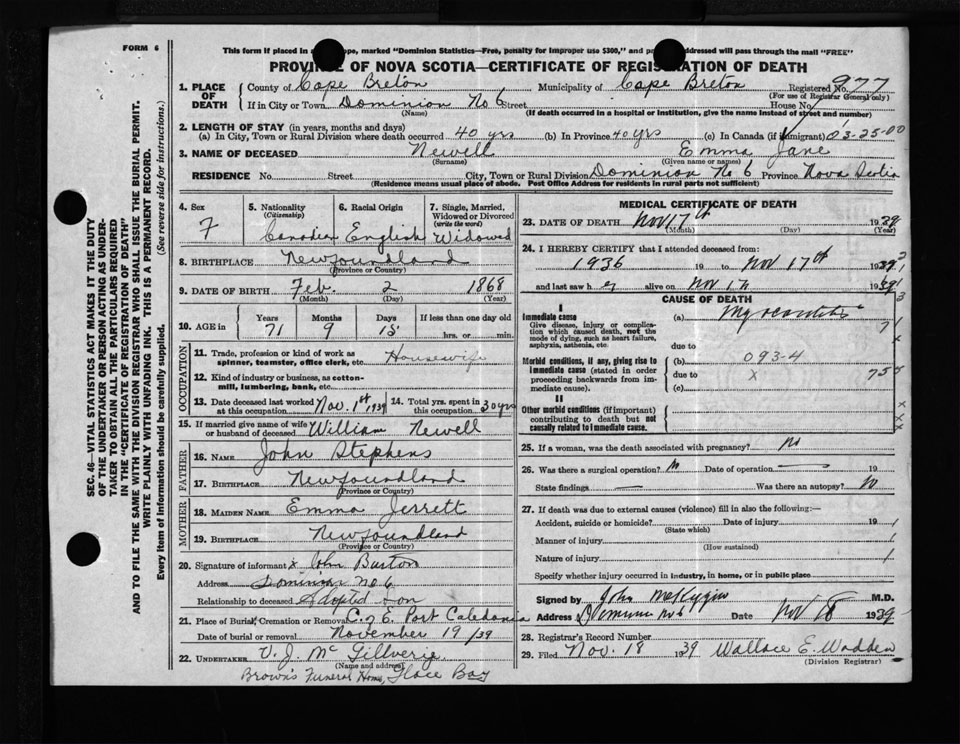 FORM 6
This form if placed in a ope, marked "Dominion Statistics—Free, penalty for improper use $300," and addressed will pass through the mail "FREE"
PROVINCE OF NOVA SCOTIA—CERTIFICATE OF REGISTRATION OF DEATH
1. PLACE OF DEATH County of Cape Breton Municipality of Cape Breton Registered No. 977
(For use of Registrar General only)
If in City or Town Dominion No 6 Street House No.
(Name) (If death occurred in a hospital or institution, give the name instead of street and number)
2. LENGTH OF STAY (in years, months and days)
(a) In City, Town or Rural Division where death occurred 40 yrs (b) In Province 40 yrs (c) In Canada (if immigrant) 03-25-00
3. NAME OF DECEASED Newell Emma Jane
(Surname) (Given name or names)
RESIDENCE No. Street City, Town or Rural Division Dominion No 6 Province Nova Scotia
(Residence means usual place of abode. Post Office Address for residents in rural parts not sufficient)
4. Sex F
5. Nationality (Citizenship) Canadian
6. Racial Origin English
7. Single, Married, Widowed or Divorced (write the word) Widowed
8. BIRTHPLACE Newfoundland
(Province or Country)
9. DATE OF BIRTH Feb. 2 1868
(Month) (Day) (Year)
10. AGE in Years Months Days If less than one day old
71 9 15 hrs. or min.
OCCUPATION
11. Trade, profession or kind of work as spinner, teamster, office clerk, etc. Housewife
12. Kind of industry or business, as cotton-mill, lumbering, bank, etc.
13. Date deceased last worked at this occupation Nov. 1st 1939 14. Total yrs. spent in this occupation 30 yrs
15. If married give name of wife or husband of deceased William Newell
FATHER
16. NAME John Stephens
17. BIRTHPLACE Newfoundland
(Province or Country)
MOTHER
18. MAIDEN NAME Emma Jerrett
19. BIRTHPLACE Newfoundland
(Province or Country)
20. Signature of informant x John Burton
Address Dominion No 6
Relationship to deceased Adopted son
21. Place of Burial, Cremation or Removal C. of E. Port Caledonia
Date of burial or removal November 19/39
22. UNDERTAKER V. J. McGillvery
(Name and address)
Brown's Funeral Home, Glace Bay
MEDICAL CERTIFICATE OF DEATH
23. DATE OF DEATH Nov 17th 1939
(Month) (Day) (Year)
24. I HEREBY CERTIFY that I attended deceased from:
1936 19 to Nov 17th 1939
and last saw her alive on Nov 1939
CAUSE OF DEATH
I
Immediate cause
Give disease, injury or complication which caused death, not the mode of dying, such as heart failure, asphyxia, asthenia, etc.
(a) Myocarditis
due to
Morbid conditions, if any, giving rise to immediate cause (stated in order proceeding backwards from immediate cause).
(b) 093-4
due to x
(c)
II
Other morbid conditions (if important) contributing to death but not causally related to immediate cause.
25. If a woman, was the death associated with pregnancy? No
26. Was there a surgical operation? No Date of operation 19
State findings Was there an autopsy? No
27. If death was due to external causes (violence) fill in also the following:—
Accident, suicide or homicide? Date of injury 19
(State which)
Manner of injury
(How sustained)
Nature of injury
Specify whether injury occurred in industry, in home, or in public place
Signed by John McKiggan M.D.
Address Dominion No 6 Nov 18 1939
28. Registrar's Record Number
29. Filed Nov. 18 1939 Wallace E. Wadden
(Division Registrar)
SEC. 46—VITAL STATISTICS ACT MAKES IT THE DUTY
OF THE UNDERTAKER OR PERSON ACTING AS UNDER-
TAKER TO OBTAIN ALL THE PARTICULARS REQUIRED
IN THE "CERTIFICATE OF REGISTRATION OF DEATH"
AND TO FILE THE SAME WITH THE DIVISION REGISTRAR WHO SHALL ISSUE THE BURIAL PERMIT.
WRITE PLAINLY WITH UNFADING INK. THIS IS A PERMANENT RECORD.
Every item of information should be carefully supplied. (See reverse side for instructions.)